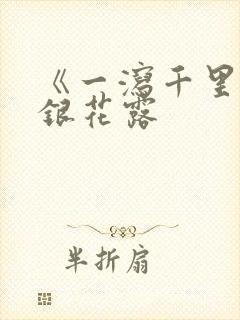 《一瀉千里
銀花露
半折扇